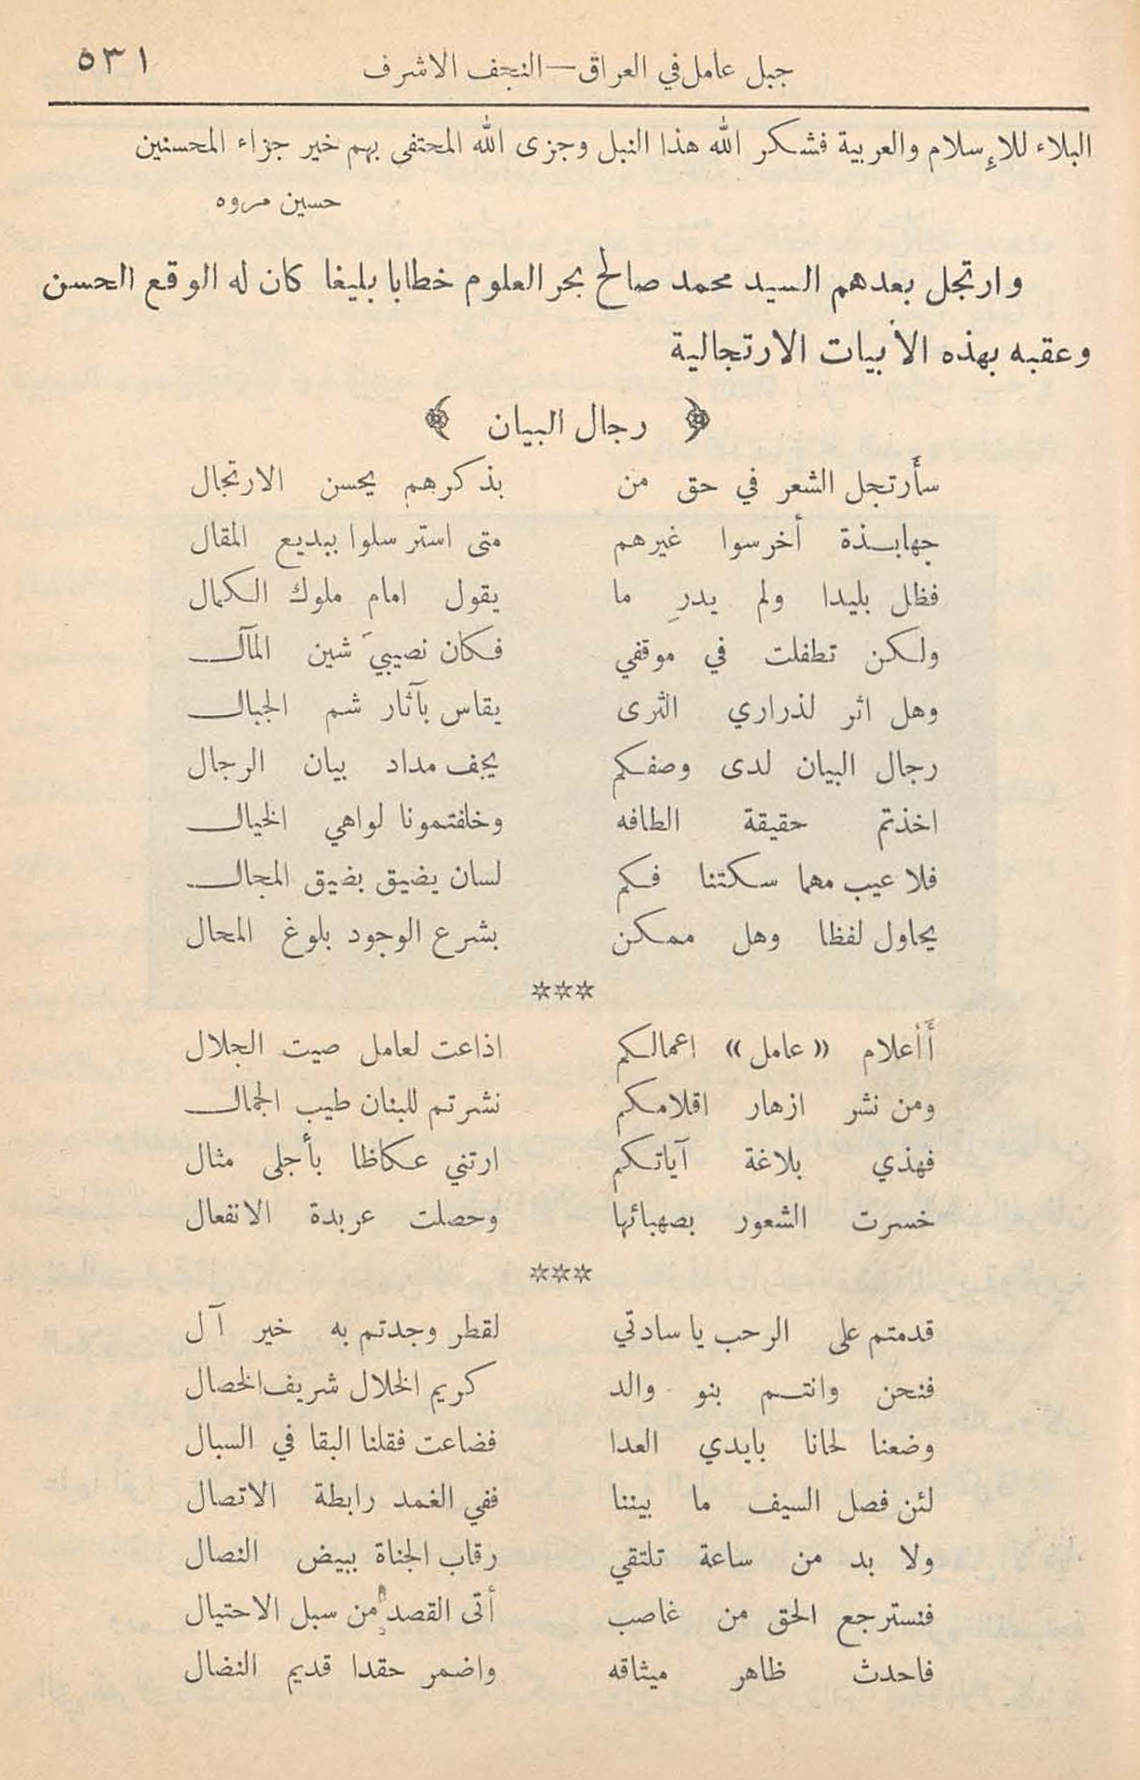 جبل عامل في العراق — النجف الاشرف ٥٣١
البلاء للإسلام والعربية فشكر الله هذا النبل وجزى الله المحتفى بهم خير جزاء المحسنين
حسين مروه
وارتجل بعدهم السيد محمد صالح بحر العلوم خطابا بليغا كان له الوقع الحسن
وعقبه بهذه الأبيات الارتجالية
﴿ رجال البيان ﴾
سأرتجل الشعر في حق من بذكرهم يحسن الارتجال
جهابذة أخرسوا غيرهم متى استرسلوا ببديع المقال
فظل بليدا ولم يدرِ ما يقول امام ملوك الكمال
ولكن تطفلت في موقفي فكان نصيبيَ شين المآل
وهل اثر لذراري الثرى يقاس بآثار شم الجبال
رجال البيان لدى وصفكم يجف مداد بيان الرجال
اخذتم حقيقة الطافه وخلفتمونا لواهي الخيال
فلا عيب مهما سكتنا فكم لسان يضيق بضيق المجال
يحاول لفظا وهل ممكن بشرع الوجود بلوغ المحال
***
أأعلام «عامل» اعمالكم اذاعت لعامل صيت الجلال
ومن نشر ازهار اقلامكم نشرتم للبنان طيب الجمال
فهذي بلاغة آياتكم ارتني عكاظا بأجلى مثال
خسرت الشعور بصهبائها وحصلت عربدة الانفعال
***
قدمتم على الرحب يا سادتي لقطر وجدتم به خير آل
فنحن وانتم بنو والد كريم الخلال شريف الخصال
وضعنا لحانا بايدي العدا فضاعت فقلنا البقا في السبال
لئن فصل السيف ما بيننا ففي الغمد رابطة الاتصال
ولا بد من ساعة تلتقي رقاب الجناة ببيض النصال
فنسترجع الحق من غاصب أتى القصد من سبل الاحتيال
فاحدث ظاهر ميثاقه واضمر حقدا قديم النضال